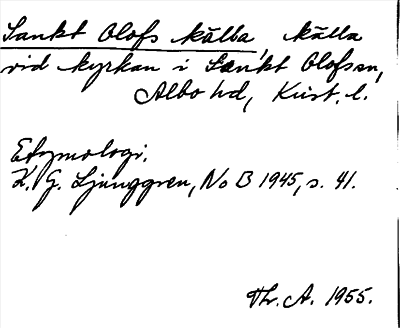 Sankt Olofs källa, källa
vid kyrkan i Sankt Olofs sn,
Albo hd, Krist. l.
Etymologi.
K. G. Ljunggren, No B 1945, s. 41.
Th. A. 1955.